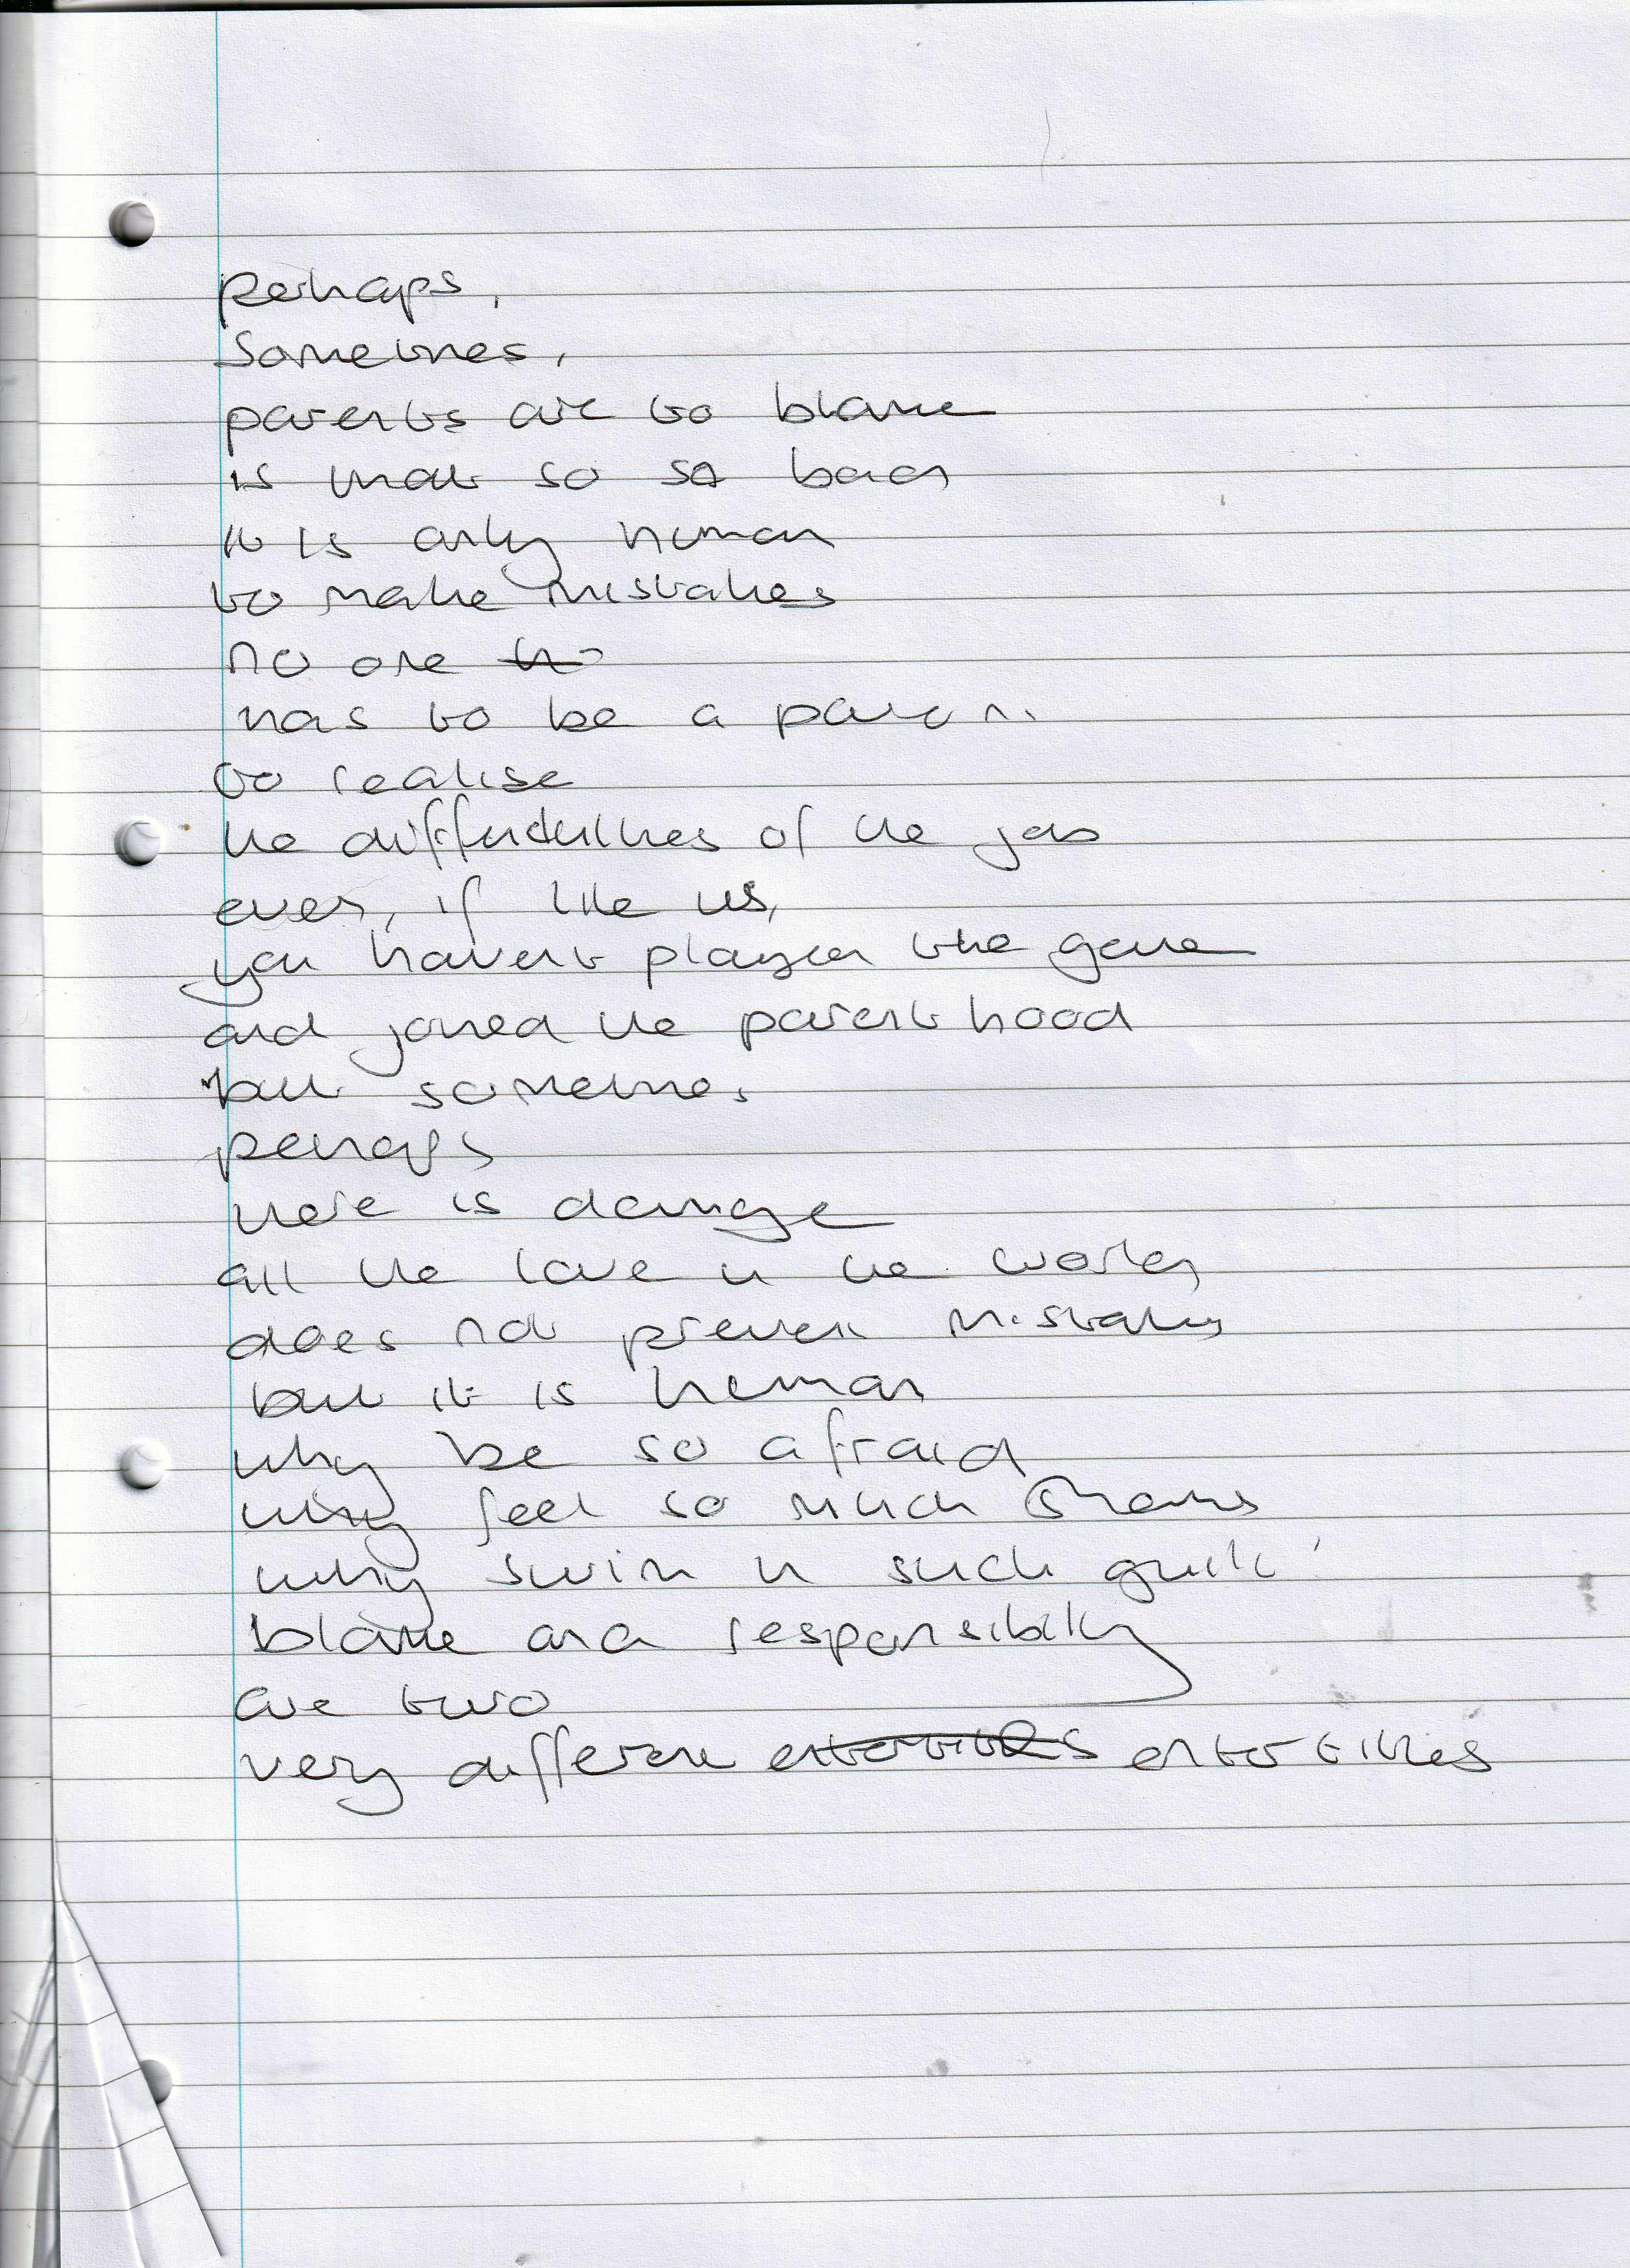 perhaps,
Sometimes,
parents are to blame
is that so so bad
it is only human
to make mistakes
no one
has to be a parent
to realise
the difficulties of the job
even, if like us,
you havent played the game
and joined the parenthood
but sometimes
perhaps
there is damage
all the love in the world
does not prevent mistakes
but it is human
why be so afraid
why feel so much shame
why swim in such guilt
blame and responsibility
are two
very different entertities entertities